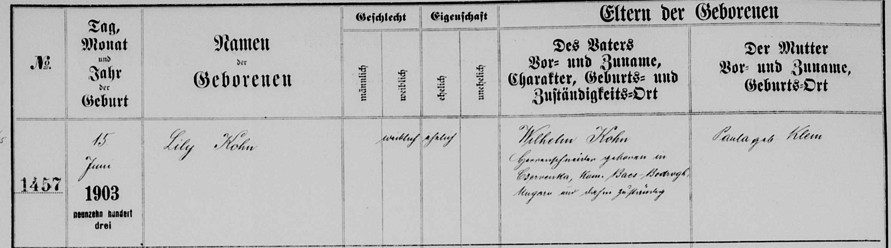 №
Tag,
Monat
und
Jahr
der
Geburt
Namen
der
Geborenen
Geschlecht
männlich
weiblich
Eigenschaft
ehelich
unehelich
Eltern der Geborenen
Des Vaters
Vor- und Zuname,
Charakter, Geburts- und
Zuständigkeits-Ort
Der Mutter
Vor- und Zuname,
Geburts-Ort
1457
15
Juni
1903
neunzehn hundert
drei
Lily Kohn
weiblich
ehelich
Wilhelm Kohn
Herrenschneider geboren in
Cservenka, Kom. Bacs-Bodrogh
Ungarn und dahin zuständig
Paula geb Klein